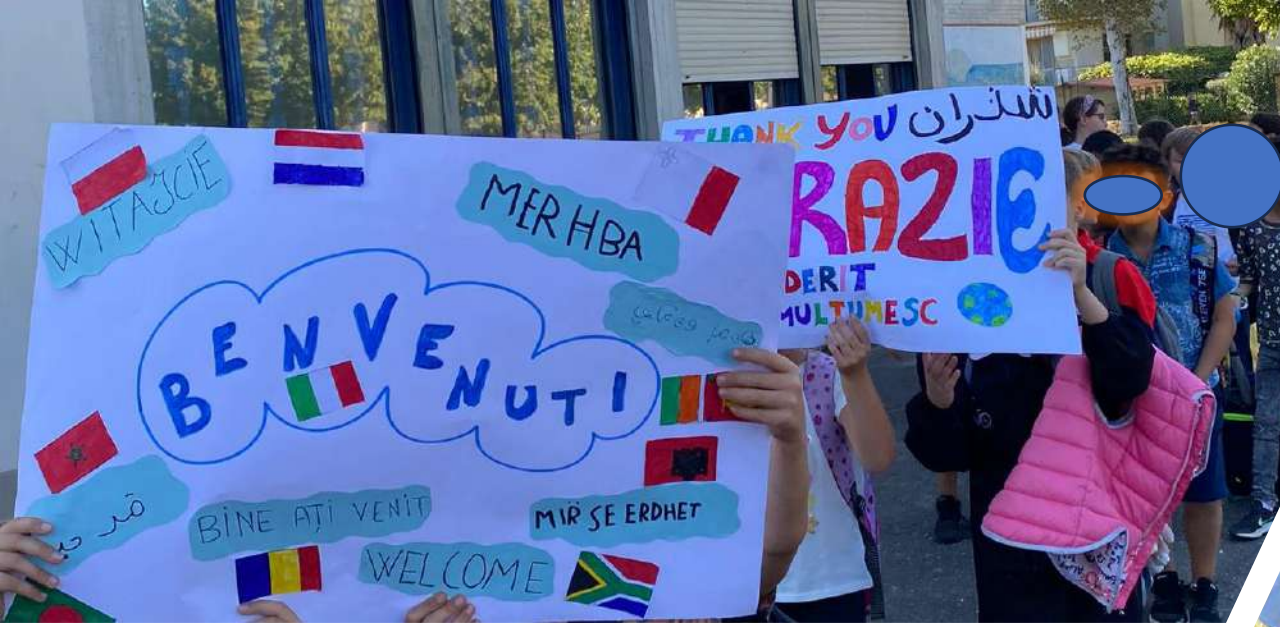 WITAJCIE
MERHBA
BENVENUTI
BINE AȚI VENIT
MIR SE ERDHET
WELCOME
THANK YOU شكران
RAZIE
DERIT
MULTUMESC